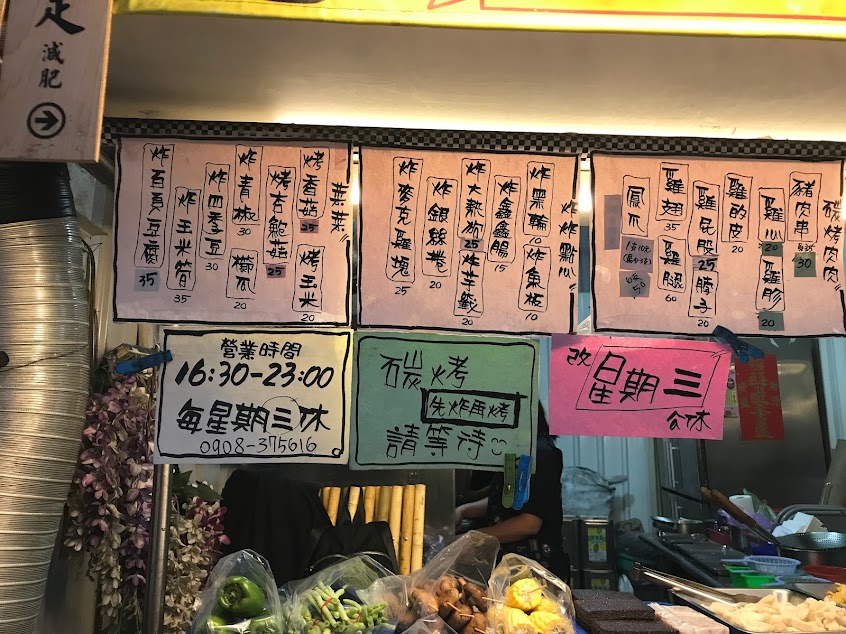 足
減肥
菜菜
烤香菇 25
烤玉米 20
烤杏鮑菇 25
炸青椒 30
櫛瓜 20
炸四季豆 30
炸玉米筍 35
炸百頁豆腐 35
炸炸點心
炸黑輪 10
炸魚板 10
炸鑫鑫腸 15
炸大熱狗 25
炸芋籤 20
炸銀絲卷 20
炸麥克雞塊 25
碳烤肉肉
豬肉串 30
雞心 20
雞胗 20
雞肉皮 20
雞屁股 25
脖子 20
雞翅 35
雞腿 60
鳳爪
營業時間
16:30-23:00
每星期三休
0908-375616
碳烤
先炸再烤
請等待
改星期三
公休